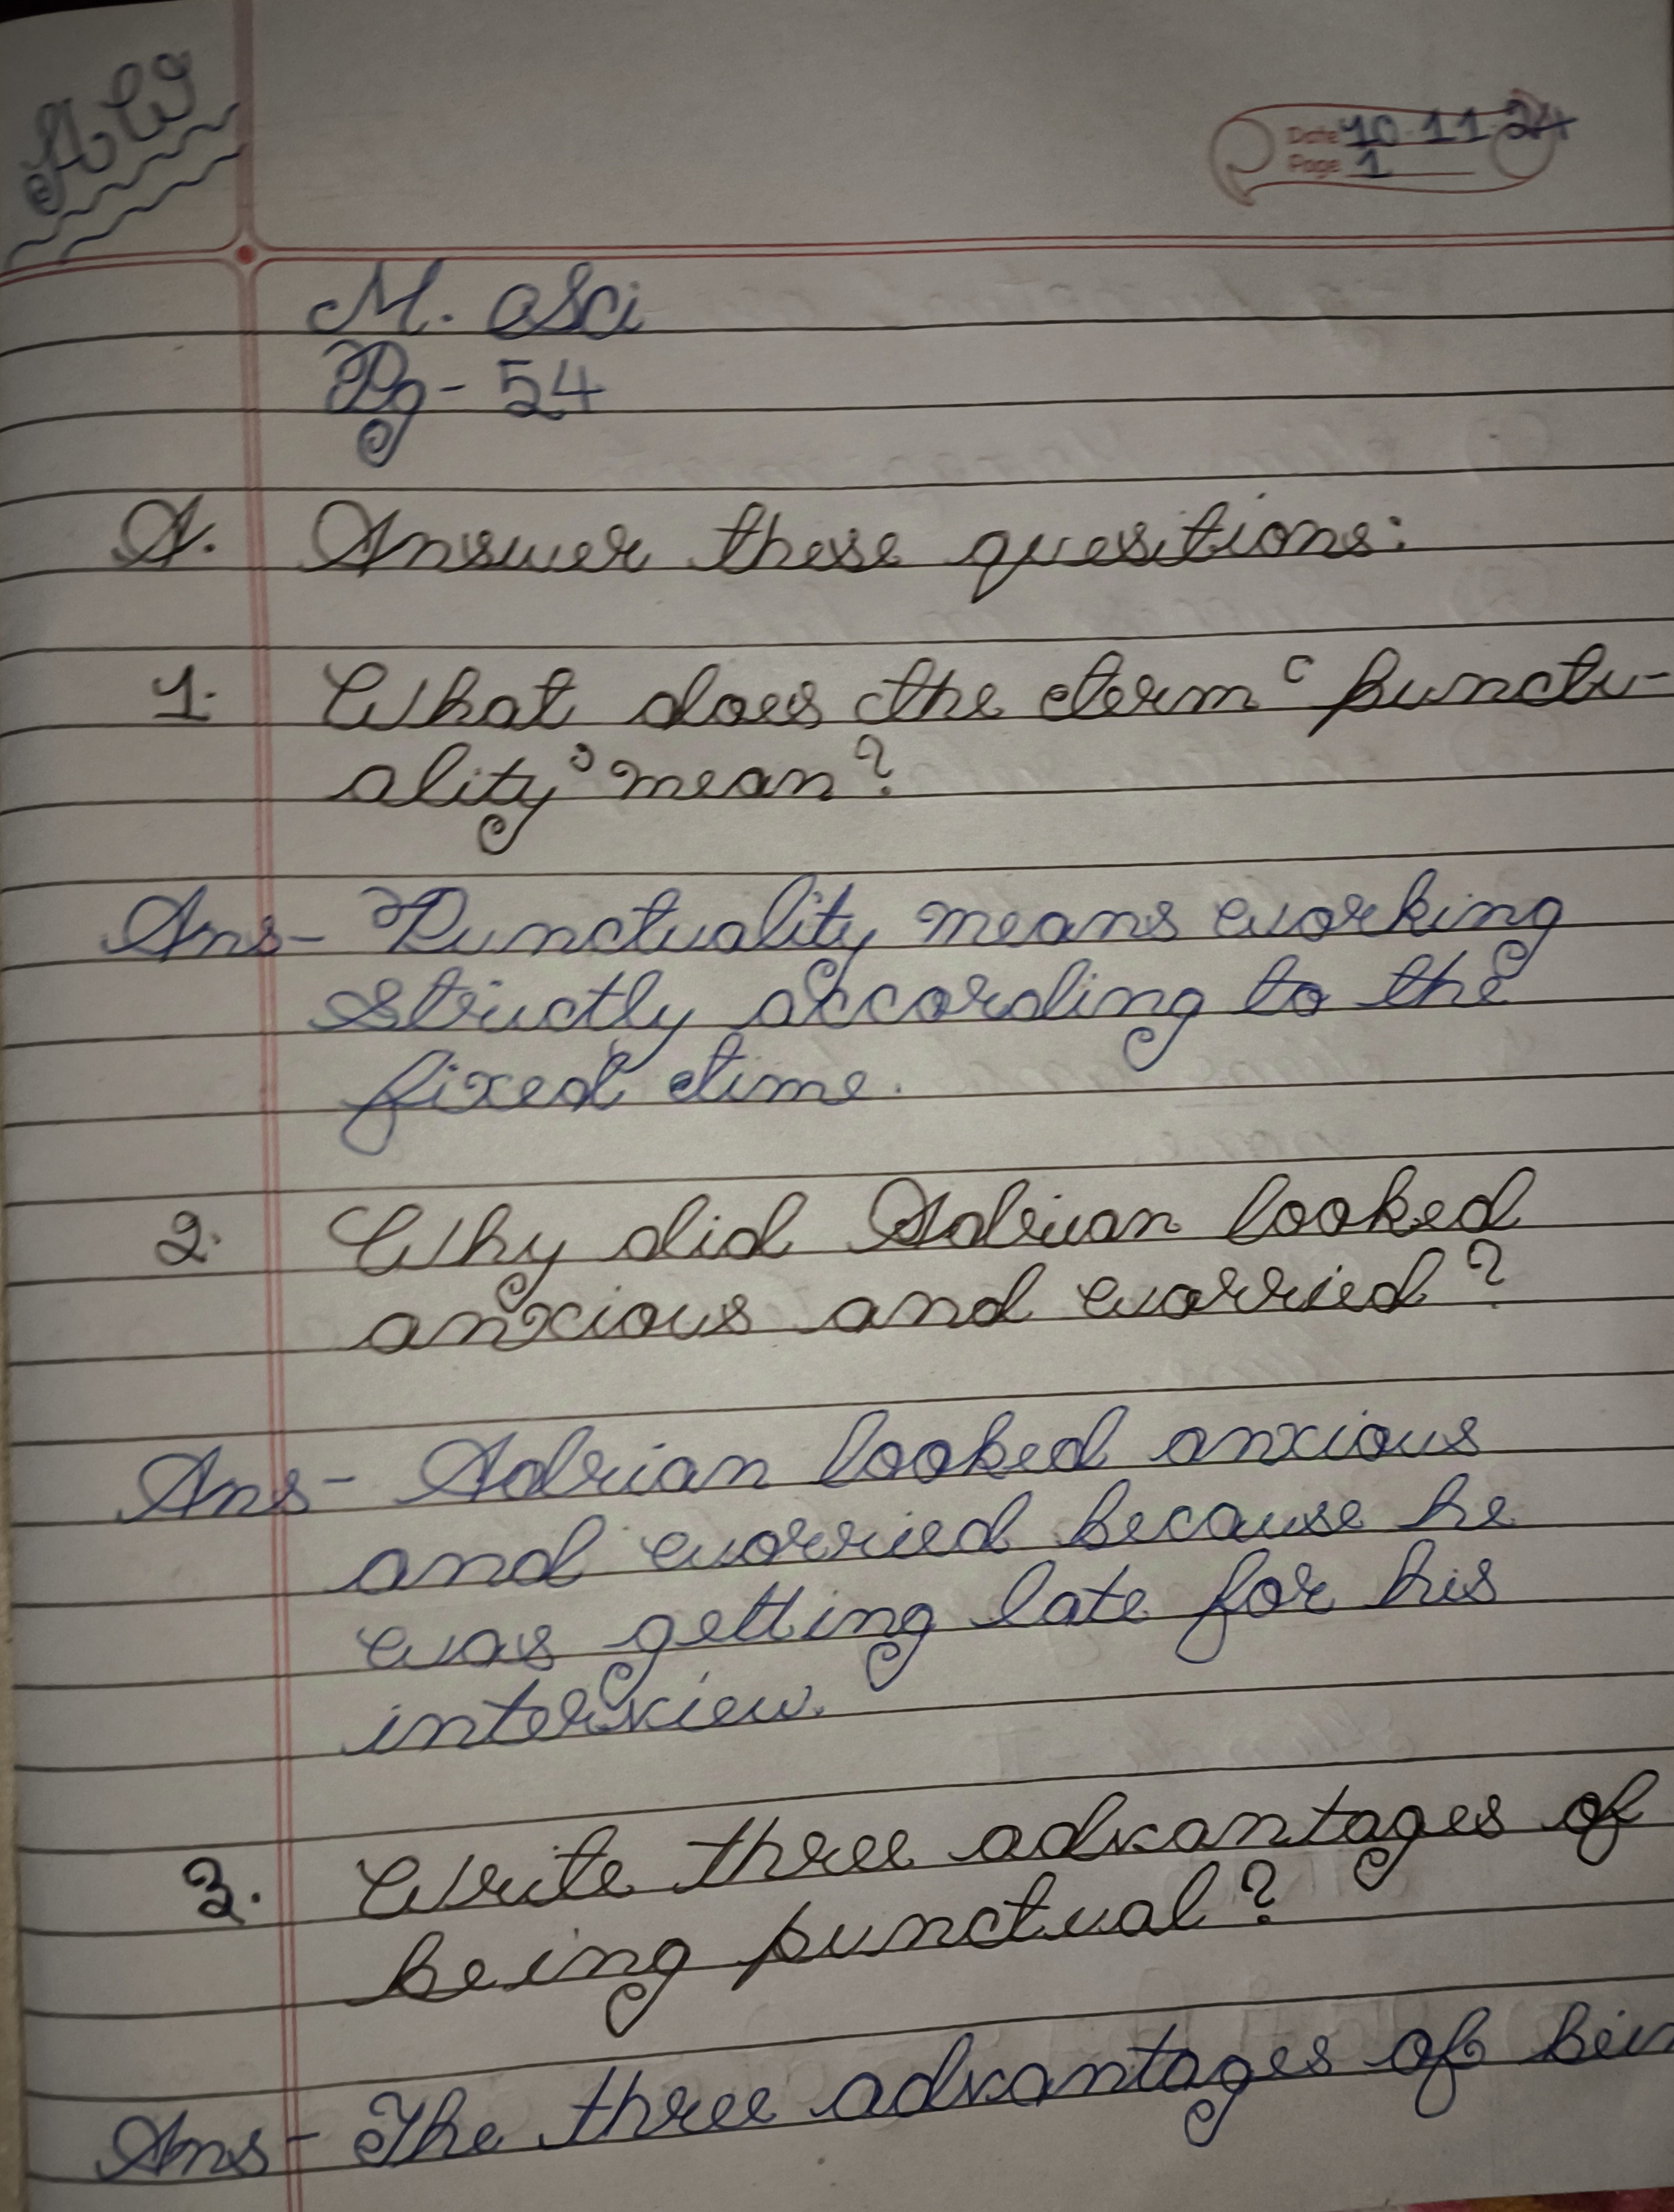 HW
Date 10.11.24
Page 1
M. Sci
Pg- 54
A. Answer these questions:
1. What does the term ‘punctu-
ality’ mean?
Ans- Punctuality means working
strictly according to the
fixed time.
2. Why did Adrian looked
anxious and worried?
Ans- Adrian looked anxious
and worried because he
was getting late for his
interview.
3. Write three advantages of
being punctual?
Ans- The three advantages of bein